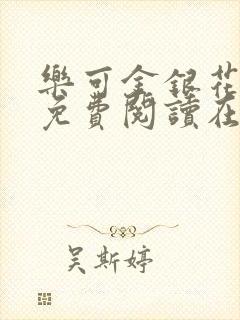 樂可金銀花
免費閱讀在
吴斯婷